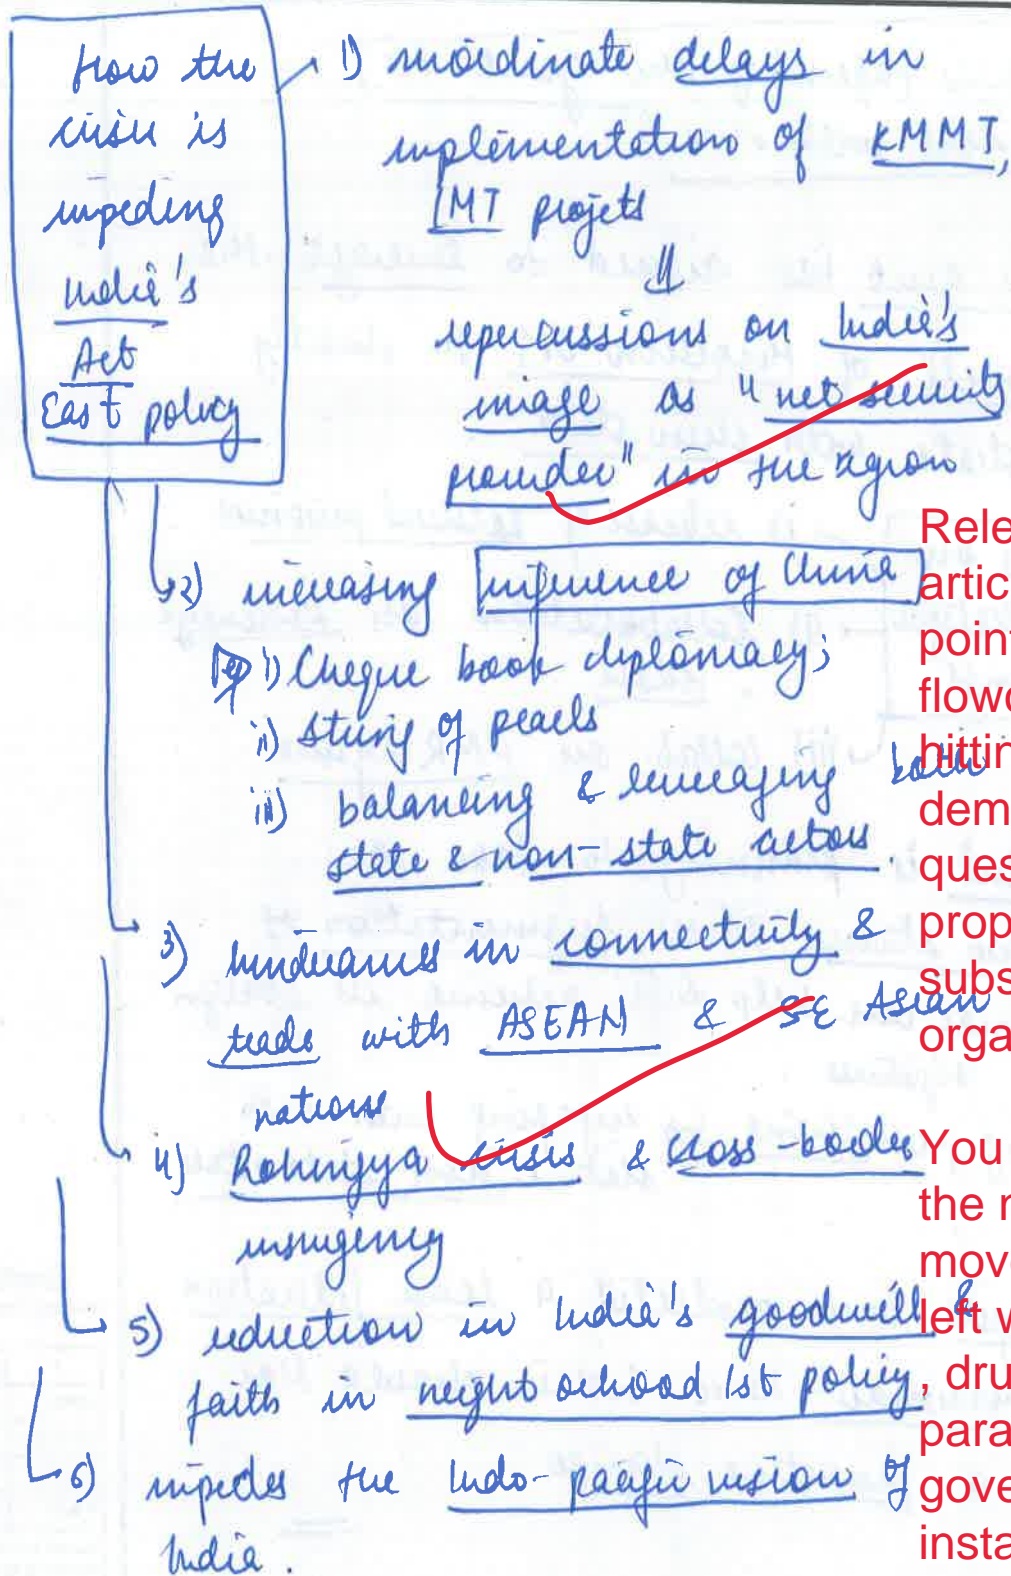 How the
crisis is
impeding
India's
Act
East policy
1) inordinate delays in
implementation of KMMT,
IMT projets
⇓
repercussions on India's
image as "net security
provider" in the region
2) increasing influence of China
eg i) Cheque book diplomacy;
ii) String of pearls
iii) balancing & leveraging both
state & non-state actors.
3) hinderances in connectivity &
trade with ASEAN & SE Asian
nations
4) Rohingya crisis & cross-border
insurgency
5) reduction in India's goodwill &
faith in neighbourhood 1st policy,
6) impedes the Indo-pacific vision of
India.
Rele
artic
point
flowc
hittin
dem
ques
prop
subs
orga
You
the r
move
left w
, dru
para
gove
insta